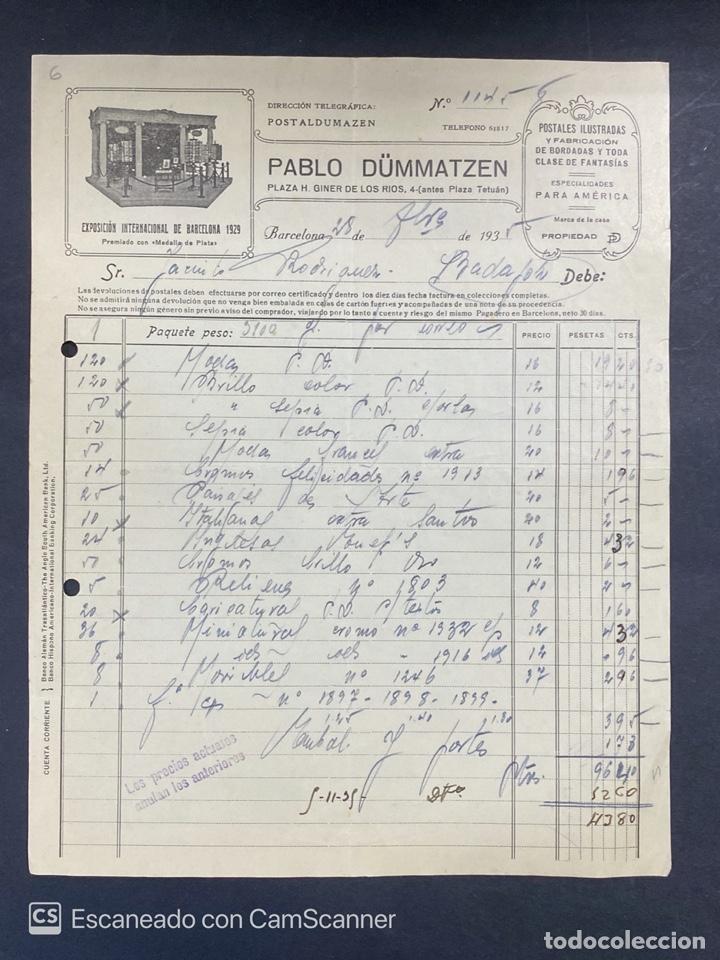 6
DIRECCIÓN TELEGRÁFICA:
POSTALDUMAZEN
N.º 11456
TELEFONO 51517
PABLO DÜMMATZEN
PLAZA H. GINER DE LOS RIOS, 4-(antes Plaza Tetuán)
POSTALES ILUSTRADAS
Y FABRICACIÓN
DE BORDADAS Y TODA
CLASE DE FANTASÍAS
ESPECIALIDADES
PARA AMÉRICA
Marca de la casa
PROPIEDAD PD
EXPOSICIÓN INTERNACIONAL DE BARCELONA 1929
Premiado con «Medalla de Plata»
Barcelona 28 de de 1935
Sr. Rodriguez - Badajoz Debe:
Las devoluciones de postales deben efectuarse por correo certificado y dentro los diez días fecha factura en colecciones completas.
No se admitirá ninguna devolución que no venga bien embalada en cajas de cartón fuertes y acompañadas de una nota de su procedencia.
No se asegura ningún género sin previo aviso del comprador, viajando por lo tanto a cuenta y riesgo del mismo Pagadero en Barcelona, neto 30 días.
1 Paquete peso: por correo PRECIO PESETAS CTS.
120 Modas P.D. 16 1920
120 Brillo color P.D. 12 1440
50 " sepia P.D. 16 8
50 Sepia color P.D. 16 8
50 Modas francesl extra 20 10
14 Cromos felicidades nº 1913 14 196
25 Paisajes de Arte 20 5
10 extra Santos 20 2
24 Inglesas 18 432
50 Cromos Brillo Oro 12 6
5 Relieves nº 1803 40 2
20 P.D. 8 160
36 Miniatural cromo nº 1932 12 432
8 id - id - 1916 id 12 96
8 nº 1246 37 296
1 nº 1897 - 1898 - 1899 -
1'25 1'40 1'30 395
Embal. y portes 173
Ptas. 9640
5-11-35 Dto. 5260
4380
Los precios actuales
anulan los anteriores
CUENTA CORRIENTE
Banco Alemán Trasatlántico-The Anglo South American Bank, Ltd.
Banco Hispano Americano-International Banking Corporation.
CS Escaneado con CamScanner
todocoleccion